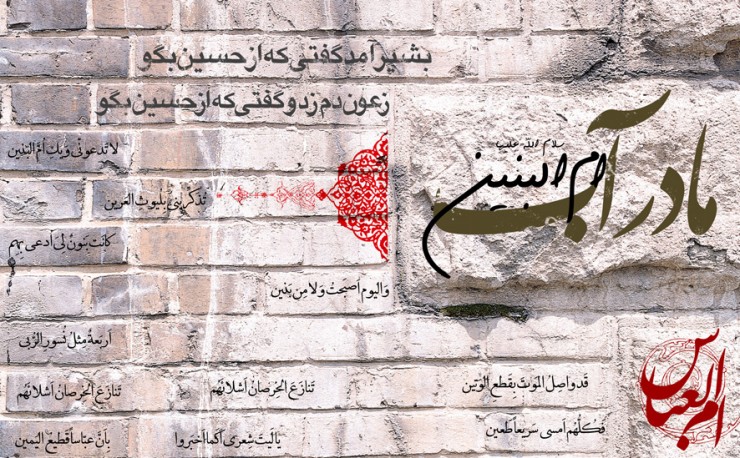 بشیر آمد گفتی که از حسین بگو
ز عون دم زد و گفتی که از حسین بگو
مادر آب
سلام الله علیها
ام البنین
لا تدعونی ویك أم البنین
تذکرینی بلیوث العرین
کانت بنون لی أدعی بهم
والیوم أصبحت ولا من بنین
أربعة مثل نسور الربی
قد واصل الموت بقطع الوتین
تنازع الخرصان أشلائهم
تنازع الخرصان أشلائهم
فکلهم أمسی صریعا طعین
یا لیت شعری أکما أخبروا
بأن عباسا قطیع الیمین
ام العباس